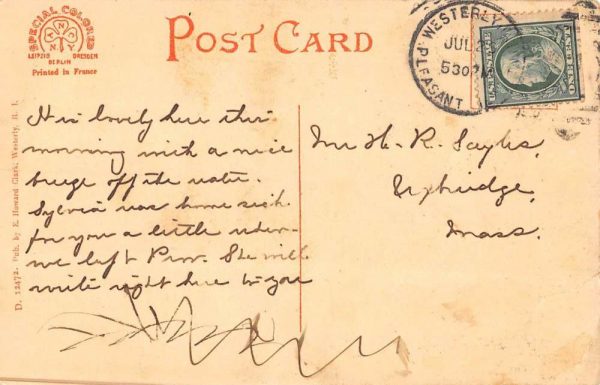 SPECIAL COLORED
ANCO
LEIPZIG DRESDEN
BERLIN
Printed in France
POST CARD
WESTERLY
JUL
530 PM
PLEASANT
U.S. POSTAGE
ONE CENT
D. 12472. Pub. by E. Howard Clark, Westerly, R. I.
It is lovely here this
morning with a nice
breeze off the water.
Sylvia was home sick
for you a little when
we left Prov. She will
write right here to you
Mr H. R. Sayles,
Uxbridge,
Mass.